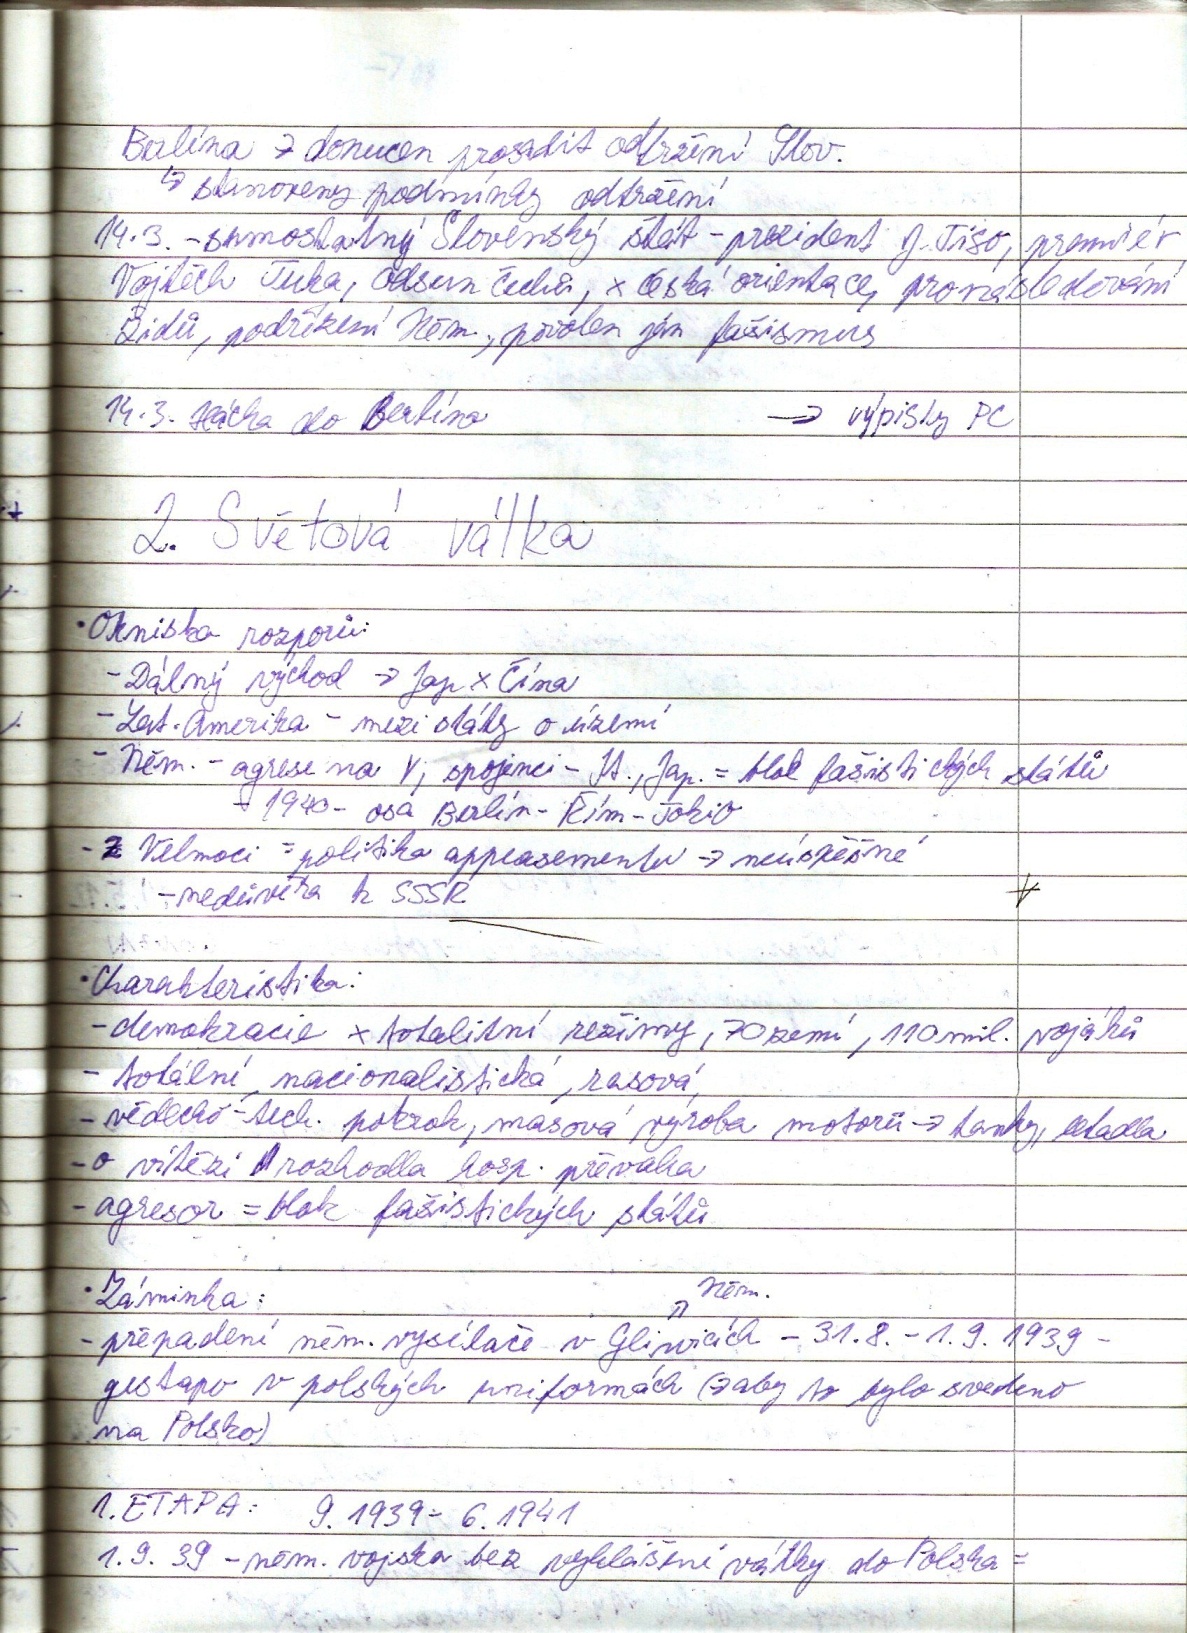 Berlína → donucen prosadit odtržení Slov.
↳ stanoveny podmínky odtržení
14.3. - samostatný Slovenský stát - prezident J. Tiso, premiér
Vojtěch Tuka, odsun Čechů, × česká orientace, pronásledování
Židů, podřízení Něm., povolen jen fašismus
14.3. Hácha do Berlína → výpisky PC
2. Světová válka
• Ohniska rozporů:
- Dálný východ → Jap × Čína
- Lat. Amerika - mezi státy o území
- Něm. - agrese na V, spojenci - It., Jap. = blok fašistických států
- 1940 - osa Berlín - Řím - Tokio
- Velmoci = politika appeasementu → neúspěšné
- nedůvěra k SSSR
• Charakteristika:
- demokracie × totalitní režimy, 70 zemí, 110 mil. vojáků
- totální, nacionalistická, rasová
- vědecko-tech. pokrok, masová výroba motorů → tanky, letadla
- o vítězi rozhodla hosp. převaha
- agresor = blok fašistických států
• Záminka: Něm.
- přepadení něm. vysílače v Gliwicích - 31.8. - 1.9. 1939 -
gestapo v polských uniformách (→ aby to bylo svedeno
na Polsko)
1. ETAPA: 9. 1939 - 6. 1941
1.9. 39 - něm. vojska bez vyhlášení války do Polska =